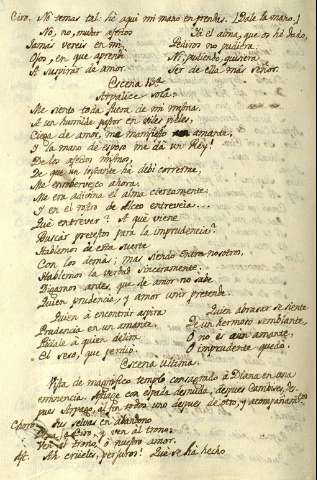 Ciro. No temas tal: hé aqui mi mano en prendas. [Dale la mano.]
No, no, mudar afectos
Jamás vereis en mi,
Ojos, en que aprendí
A suspirar de amor.
Ni el alma, que os hé dado,
Pediros no pudiera
Ni, pudiendo, quisiera
Ser de ella más Señor.
Escena 13ª
Arpalice sola.
Me siento toda fuera de mi misma.
A un humilde pastor en viles
Ciega de amor, me manifiesto amante,
Y la mano de esposo me dá un Rey!
De los afectos mismos,
De que un instante há debí correrme,
Me ensobervezco ahora.
Me era adivina el alma ciertamente.
Y en el rostro de Alceo entreveia...
Qué entrever? A qué viene
Buscar pretestos para la imprudencia?
Hablemos de esta suerte
Con los demás; mas siendo entre nosotros,
Hablemos la verdad sinceramente.
Digamos antes, que de amor no sabe
Quien prudencia, y amor unir pretende.
Quien á encontrár aspira
Prudencia en un amante,
Pidale á quien delira
El seso, que perdió.
Quien abrasar se siente
De un hermoso semblante,
O no es aun amante,
O imprudente quedó.
Escena ultima.
Vista de magnifico templo consagrado á Diana en una
eminencia. Astiage con espada desnuda, despues Cambises, des-
pues Arpago, al fin todos uno despues de otro, y acompañamto
Choro. Tus selvas en abandono
Deja, ó Ciro, y ven al trono:
Ven al trono, ó nuestro amor.
Ast. Ah crueles, perjuros! Qué se há hecho